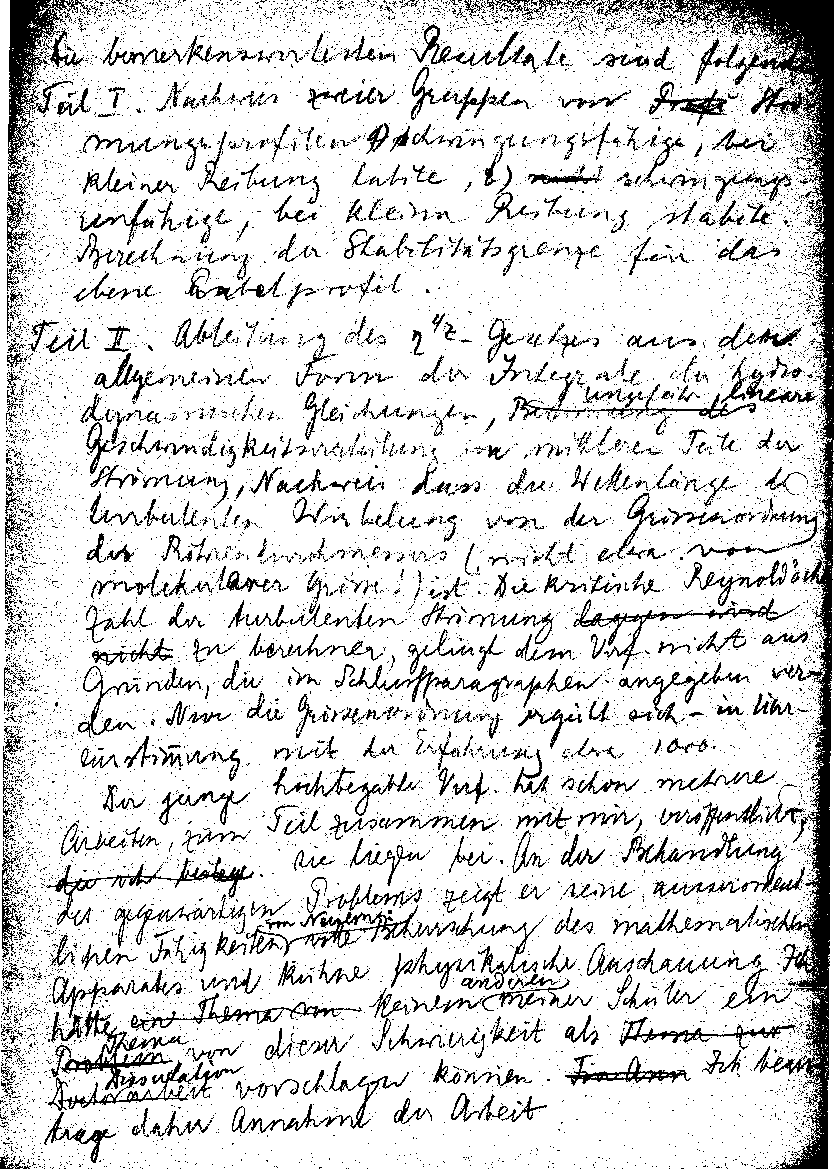 Die bemerkenswertesten Resultate sind folgende
Teil I. Nachweis zweier Gruppen von Profi Strö-
mungsprofilen a) schwingungsfähige, bei
kleiner Reibung labile, b) nicht schwingungs-
unfähige, bei kleiner Reibung stabile.
Berechnung der Stabilitätsgrenze für das
ebene Parabelprofil.
Teil II. Ableitung des η^1/2 - Gesetzes aus dem
allgemeinen Form der Integrale der hydro-
dynamischen Gleichungen, ungefähr lineare
Geschwindigkeitsverteilung im mittleren Teile der
Strömung, Nachweis dass die Wellenlänge der
turbulenten Wirbelung von der Grössenordnung
des Röhrendurchmessers (nicht etwa von
molekularer Grösse!) ist. Die kritische Reynolds'sche
Zahl der turbulenten Strömung dagegen wird
nicht zu berechnen, gelingt dem Verf. nicht aus
Gründen, die im Schlussparagraphen angegeben wer-
den. Nur die Grössenordnung ergibt sich - in Über-
einstimmung mit der Erfahrung etwa 1000.
Der junge hochbegabte Verf. hat schon mehrere
Arbeiten, zum Teil zusammen mit mir, veröffentlicht,
die ich beilege. sie liegen bei. An der Behandlung
des gegenwärtigen Problems zeigt er seine ausserordent-
lichen Fähigkeiten, Beherrschung des mathematischen
Apparates und kühne physikalische Anschauung. Ich
hätte ein Thema von keinem anderen meiner Schüler ein
Problem Thema von dieser Schwierigkeit als Thema zur
Doktorarbeit Dissertation vorschlagen können. Ich bean-
trage daher Annahme der Arbeit